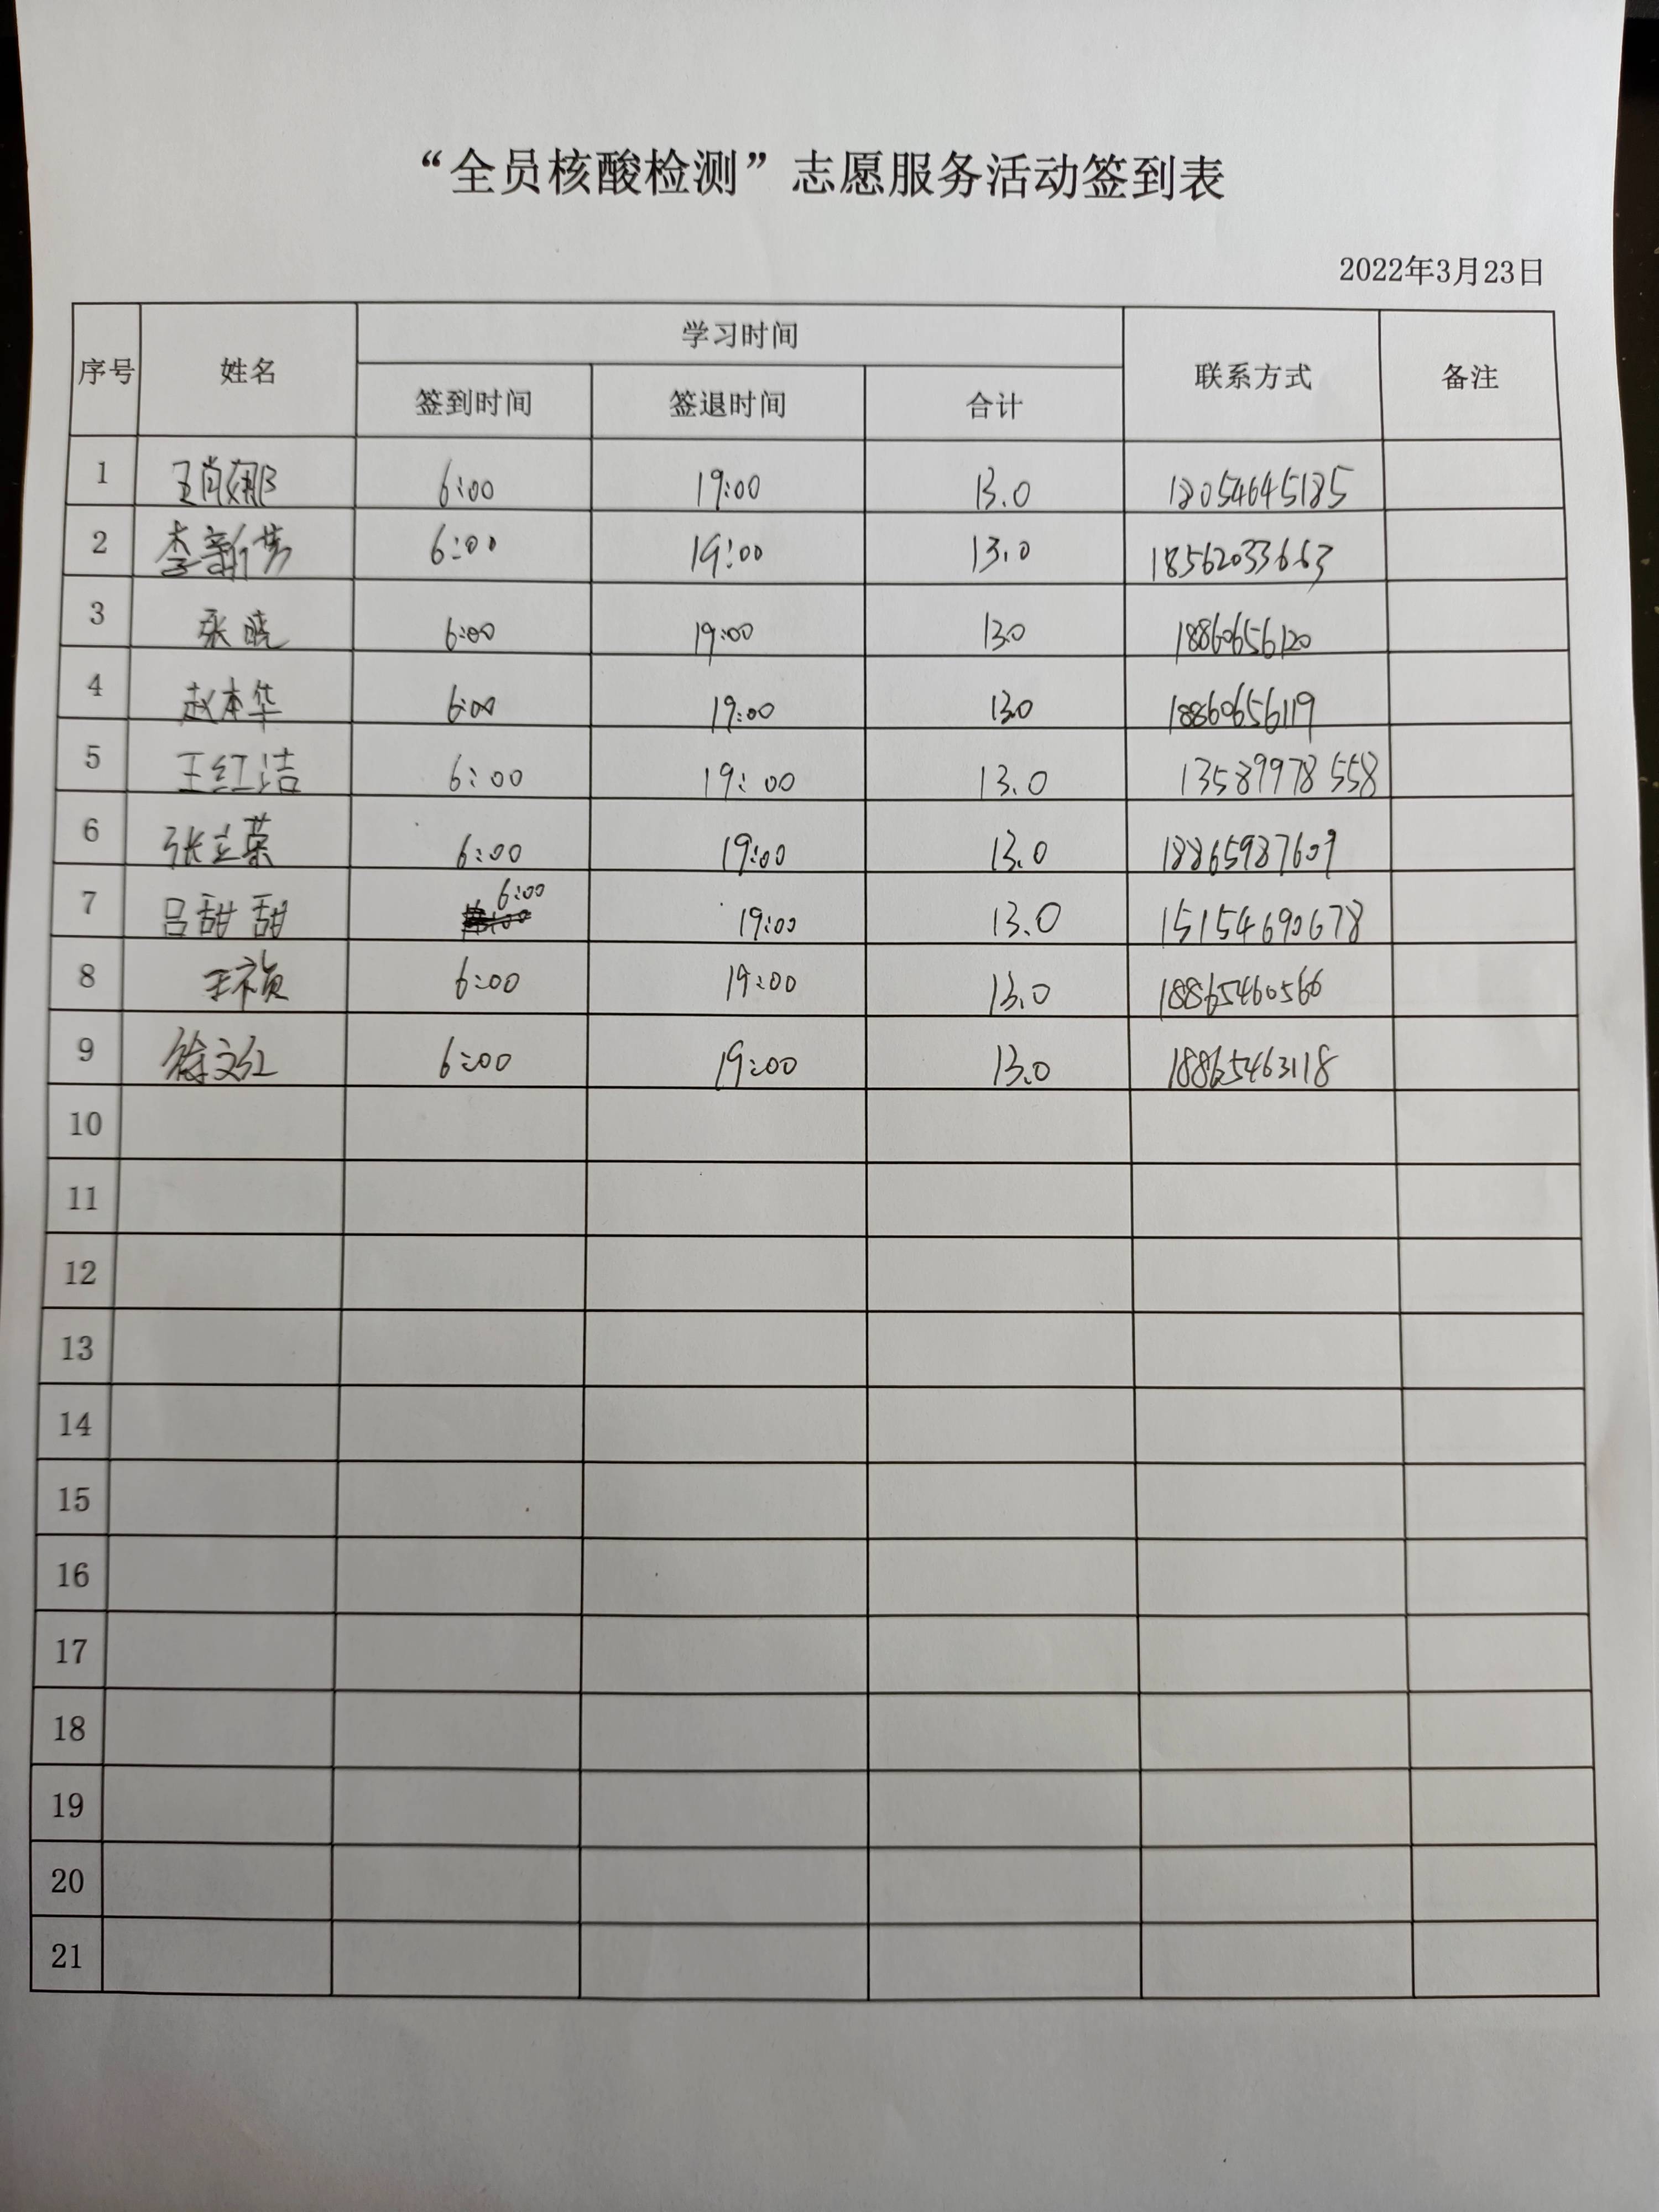 “全员核酸检测”志愿服务活动签到表
2022年3月23日
序号 姓名 学习时间 联系方式 备注
签到时间 签退时间 合计
1 王肖娜 6:00 19:00 13.0 18054645185
2 李新芳 6:00 19:00 13.0 18562033663
3 张晓 6:00 19:00 130 18860656120
4 赵本华 6:00 19:00 130 18860656119
5 王红洁 6:00 19:00 13.0 13589978558
6 张立荣 6:00 19:00 13.0 18865987609
7 吕甜甜 6:00 19:00 13.0 15154690678
8 王祯 6:00 19:00 13.0 18865460566
9 徐文红 6:00 19:00 13.0 18865463118
10
11
12
13
14
15
16
17
18
19
20
21